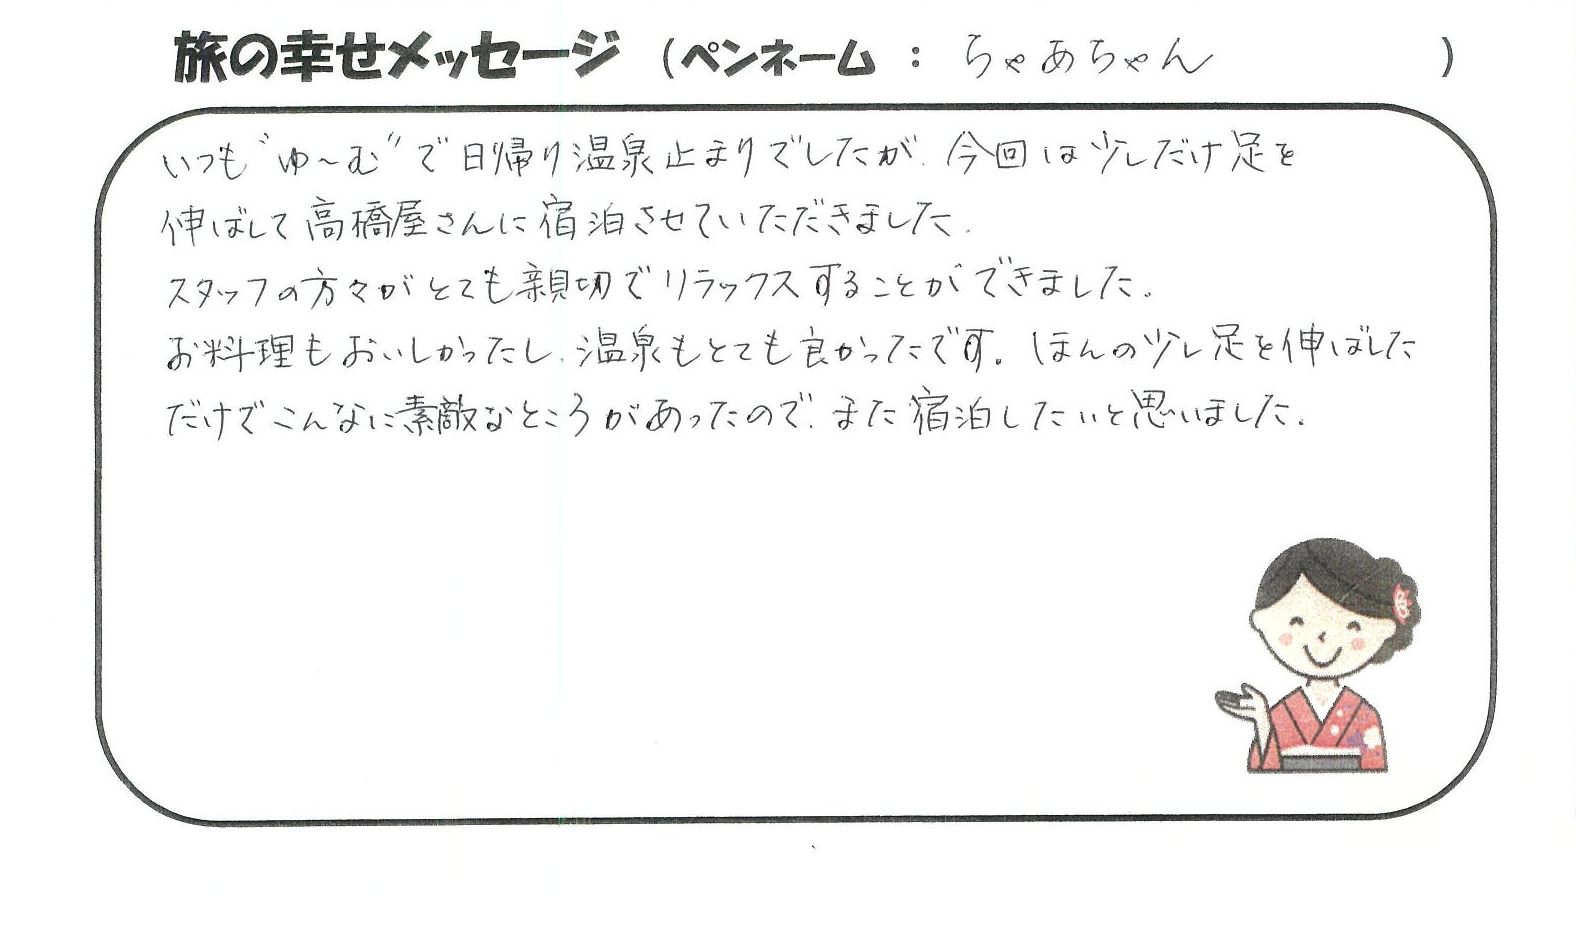 旅の幸せメッセージ (ペンネーム : ちゃあちゃん )
いつも“ゆ〜む”で日帰り温泉止まりでしたが、今回は少しだけ足を
伸ばして高橋屋さんに宿泊させていただきました。
スタッフの方々がとても親切でリラックスすることができました。
お料理もおいしかったし、温泉もとても良かったです。ほんの少し足を伸ばした
だけでこんなに素敵なところがあったので、また宿泊したいと思いました。